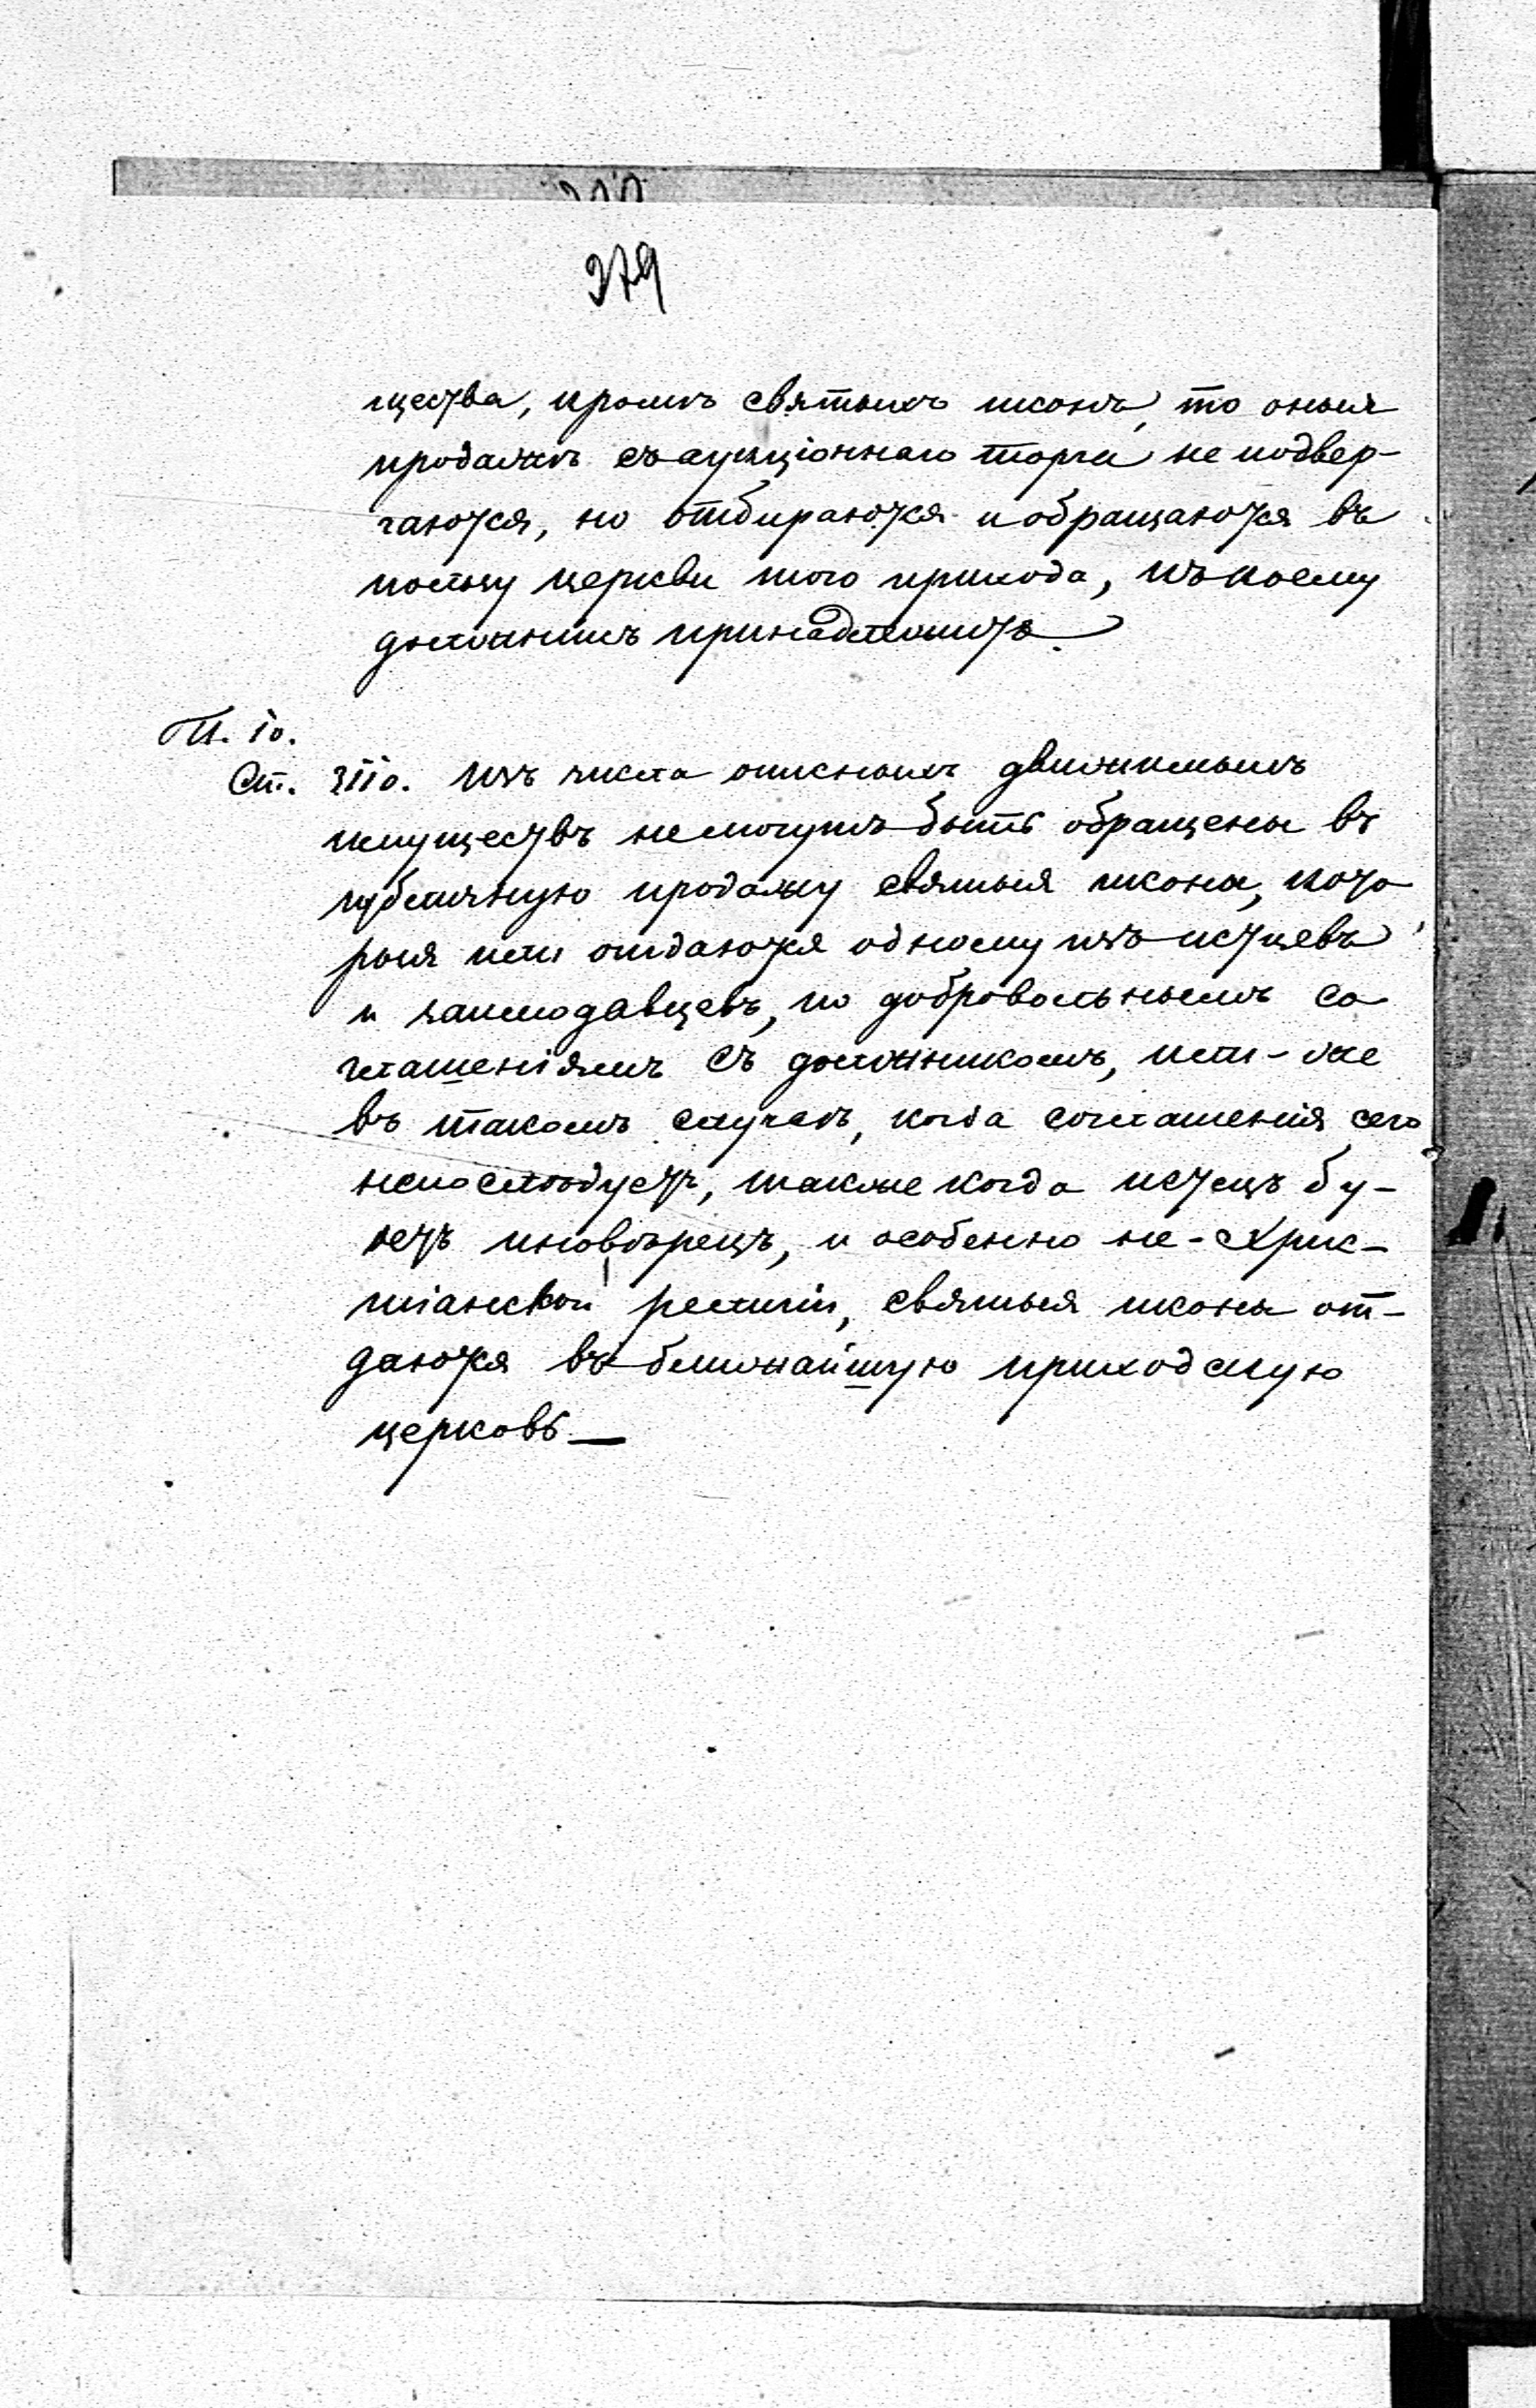 379
щества, кромѣ святыхъ иконъ, то оныя
продажѣ съ аукціоннаго торга не подвер-
гаются, но отбираются и обращаются въ
пользу церкви того прихода, къ коему
должникъ принадлежитъ.
Т. 10.
Ст. 3110. Изъ числа описныхъ движимыхъ
имуществъ не могутъ быть обращены въ
публичную продажу святыя иконы, кото
рыя или отдаются одному изъ истцевъ
и заимодавцевъ, по добровольнымъ со
глашеніямъ съ должникомъ, или-же
въ такомъ случаѣ, когда соглашенія сего
непослѣдуетъ, также когда истецъ бу-
детъ иновѣрецъ, и особенно не-Хрис-
тіанской религіи, святыя иконы от-
даются въ ближайшую приходскую
церковь —